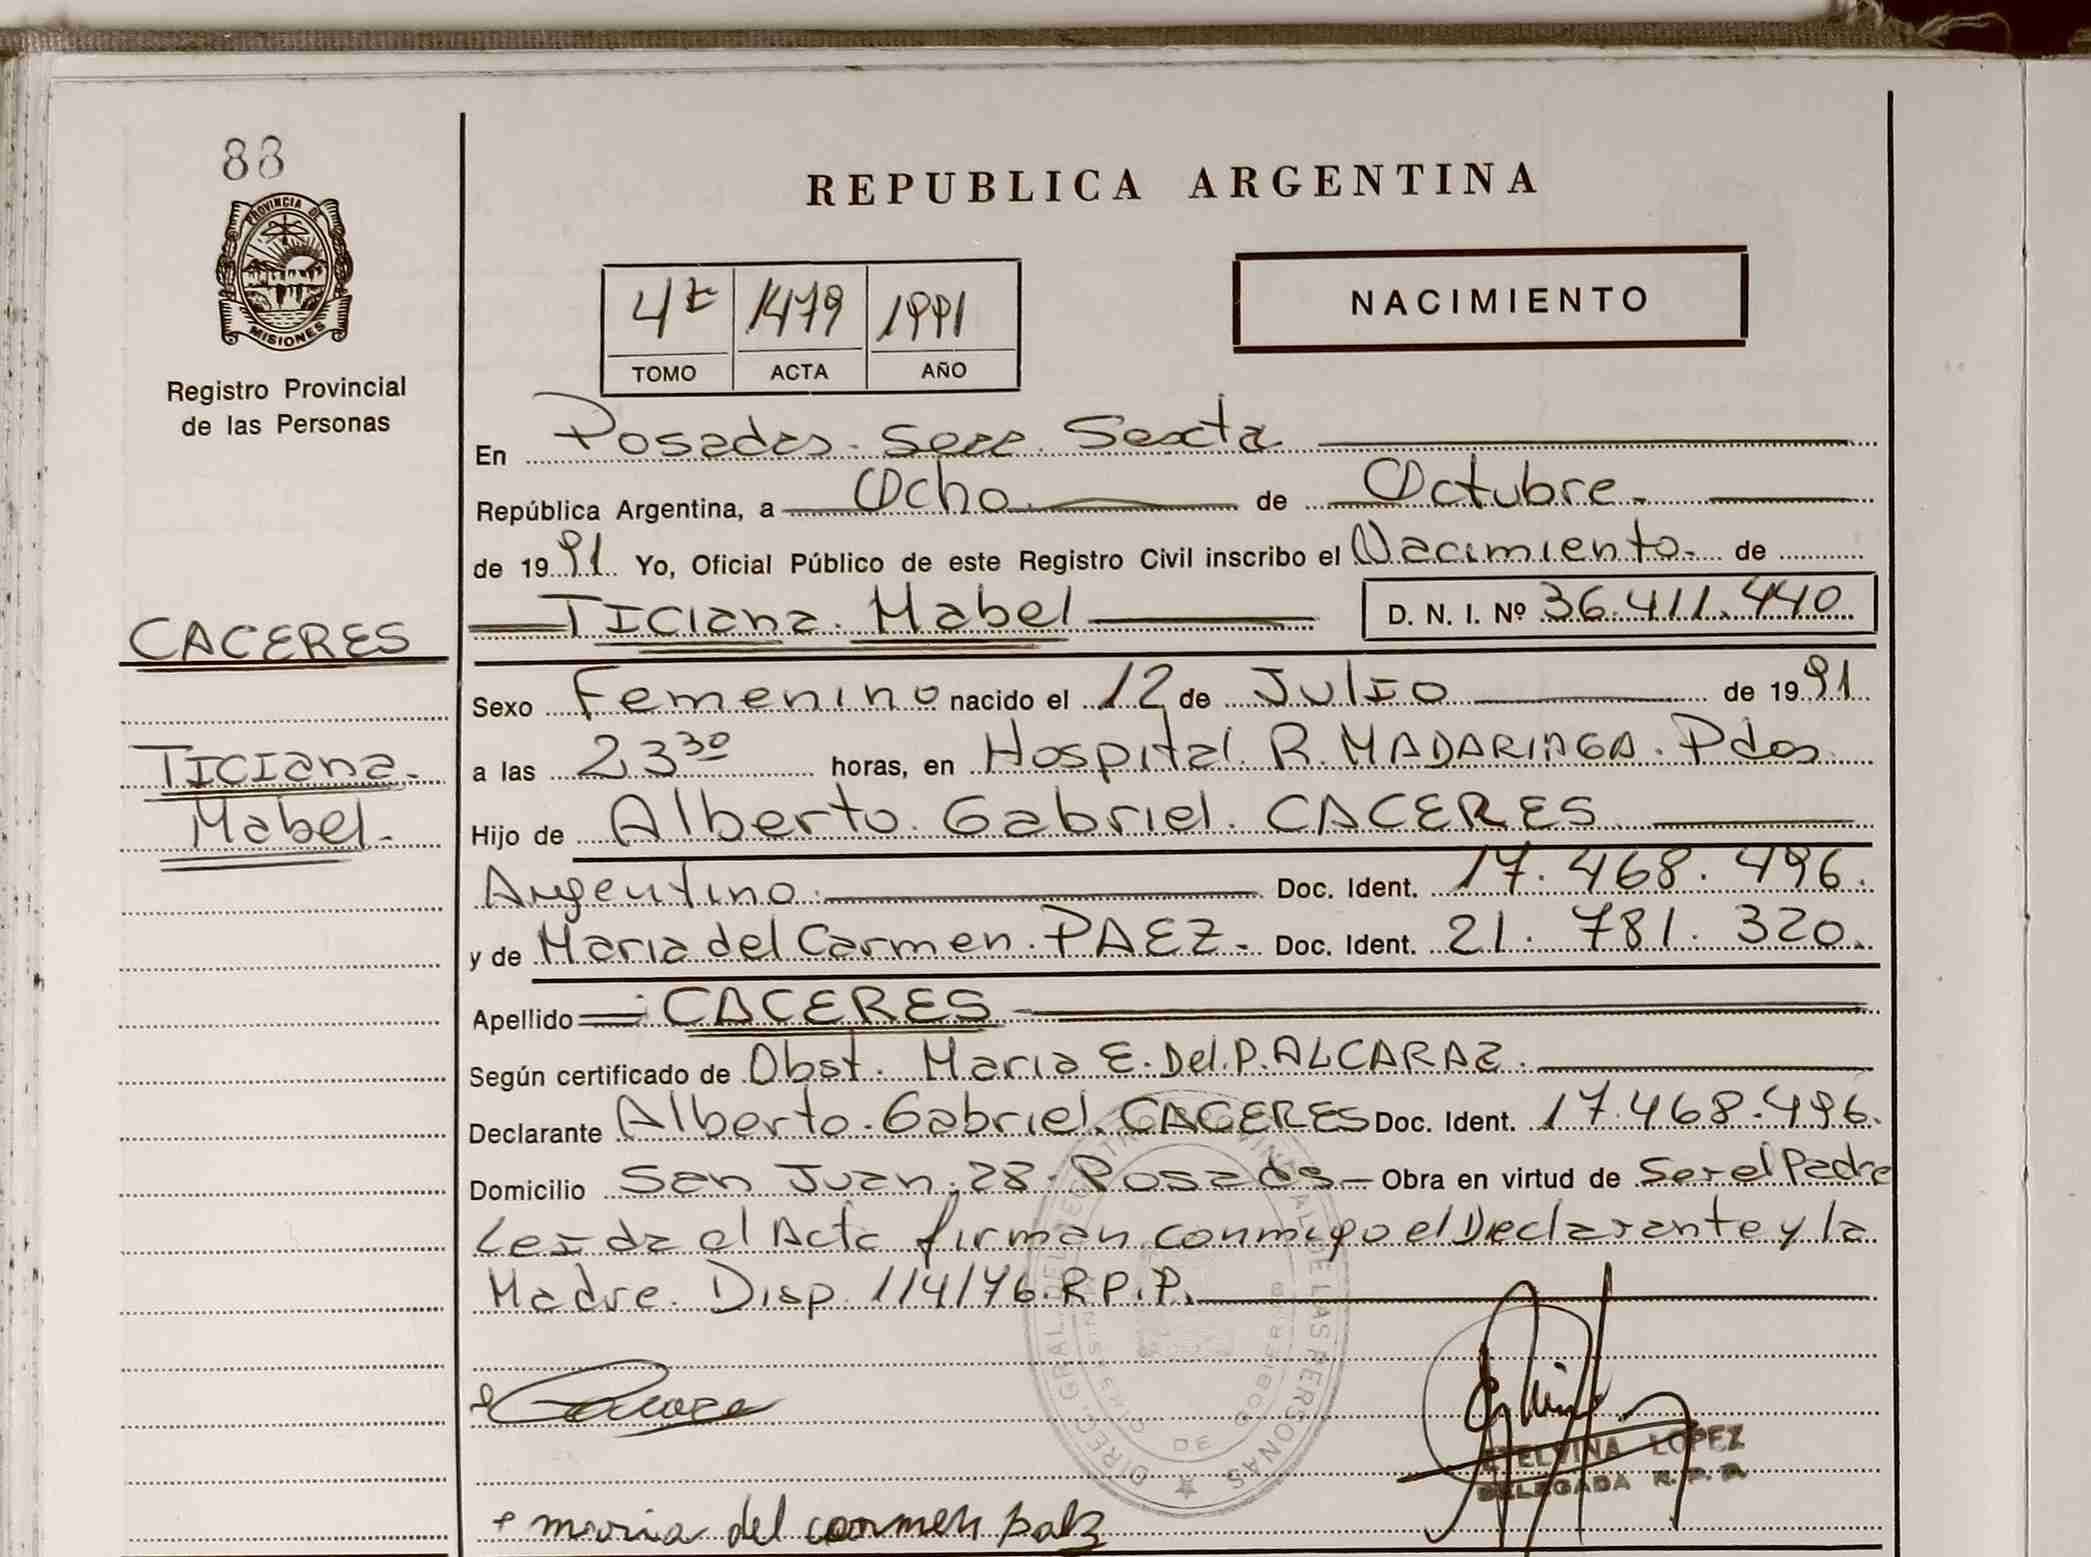 88
PROVINCIA DE
MISIONES
Registro Provincial
de las Personas
REPUBLICA ARGENTINA
4t 1479 1991
TOMO ACTA AÑO
NACIMIENTO
En Posadas. Secc. Sexta
República Argentina, a Ocho de Octubre.
de 1991. Yo, Oficial Público de este Registro Civil inscribo el Nacimiento. de
Ticiana. Mabel D. N. I. Nº 36.411.440
CACERES
Ticiana.
Mabel.
Sexo Femenino nacido el 12 de Julio de 1991
a las 23 30 horas, en Hospital R. MADARIAGA. Pdas
Hijo de Alberto. Gabriel. CACERES
Argentino. Doc. Ident. 17.468.496.
y de Maria del Carmen. PAEZ. Doc. Ident. 21.781.320.
Apellido CACERES
Según certificado de Obst. Maria E. Del. P. ALCARAZ.
Declarante Alberto. Gabriel. CACERES Doc. Ident. 17.468.496.
Domicilio San Juan. 28. Posadas Obra en virtud de Ser el Padre
Leida el Acta firman conmigo el Declarante y la
Madre. Disp. 114/76. R.P.P.
DIREC. GRAL. DE LAS PERSONAS
DE GOBIERNO
ETELVINA LOPEZ
DELEGADA R. P. P.
maria del carmen paez